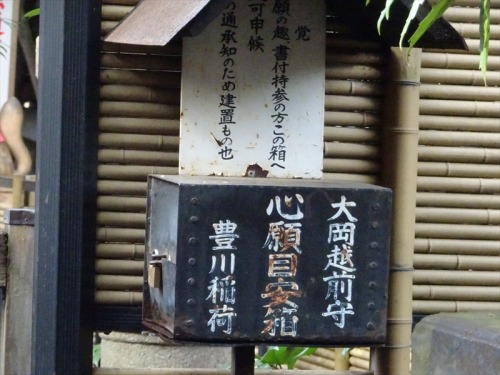 覚
願の趣書付持参の方この箱へ
可申候
の通承知のため建置もの也
大岡越前守
心願目安箱
豊川稲荷